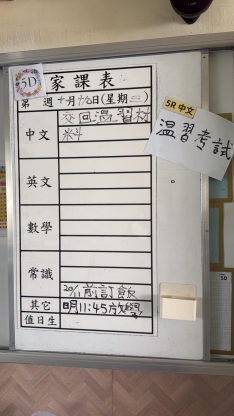 5D
家課表
第 週 十月十六日(星期三)
5R中文
溫習考試
中文 交回溫習材
料
英文
數學
常識
20/11前訂飯
其它 明11:45放學
值日生